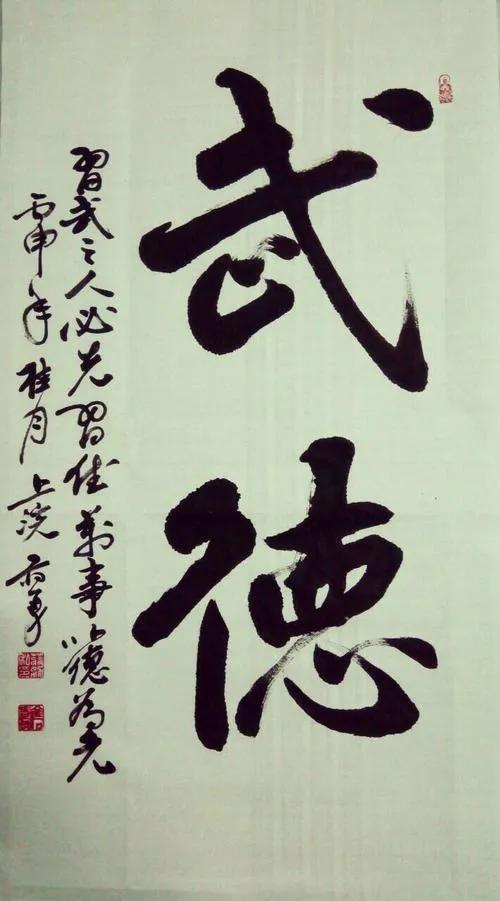 武德
習武之人必先習德萬事以德為先
丙申年桂月上浣